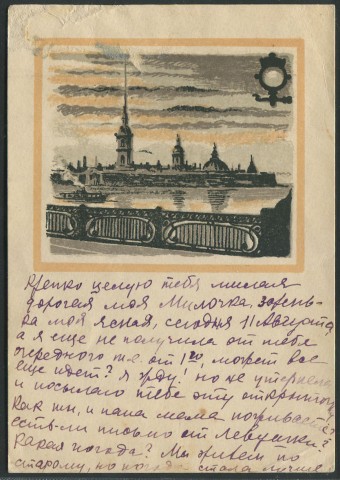 Крепко целую тебя милая
дорогая моя Милочка, зорень-
ка моя ясная, сегодня 11 Августа
а я еще не получила от тебя
очередного т.е. от 1го, может все
еще идет? Я жду! но не утерпела
и посылаю тебе эту открыточку
Как ты, и папа мама поживаете
есть-ли письмо от Левушки?
какая погода? Мы живем по
старому, но погода стала лучше